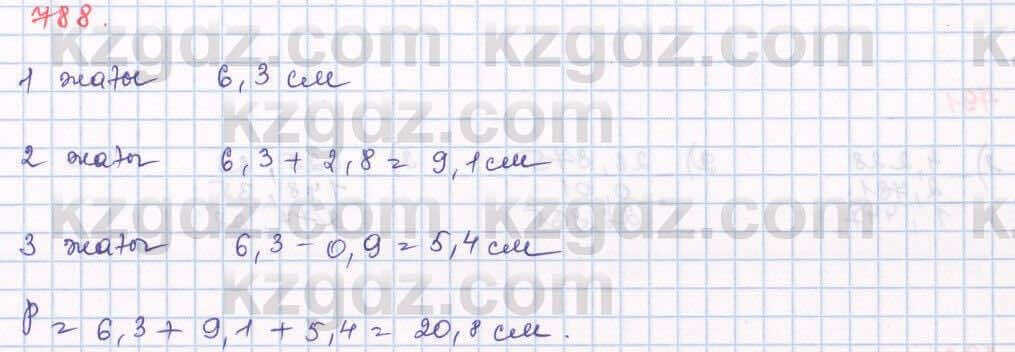 788.
kzgdz.com kzgdz.com
1 жағы 6,3 см
kzgdz.com
2 жағы 6,3 + 2,8 = 9,1 см
kzgdz.com kzgdz.com
3 жағы 6,3 - 0,9 = 5,4 см
kzgdz.com
P = 6,3 + 9,1 + 5,4 = 20,8 см.